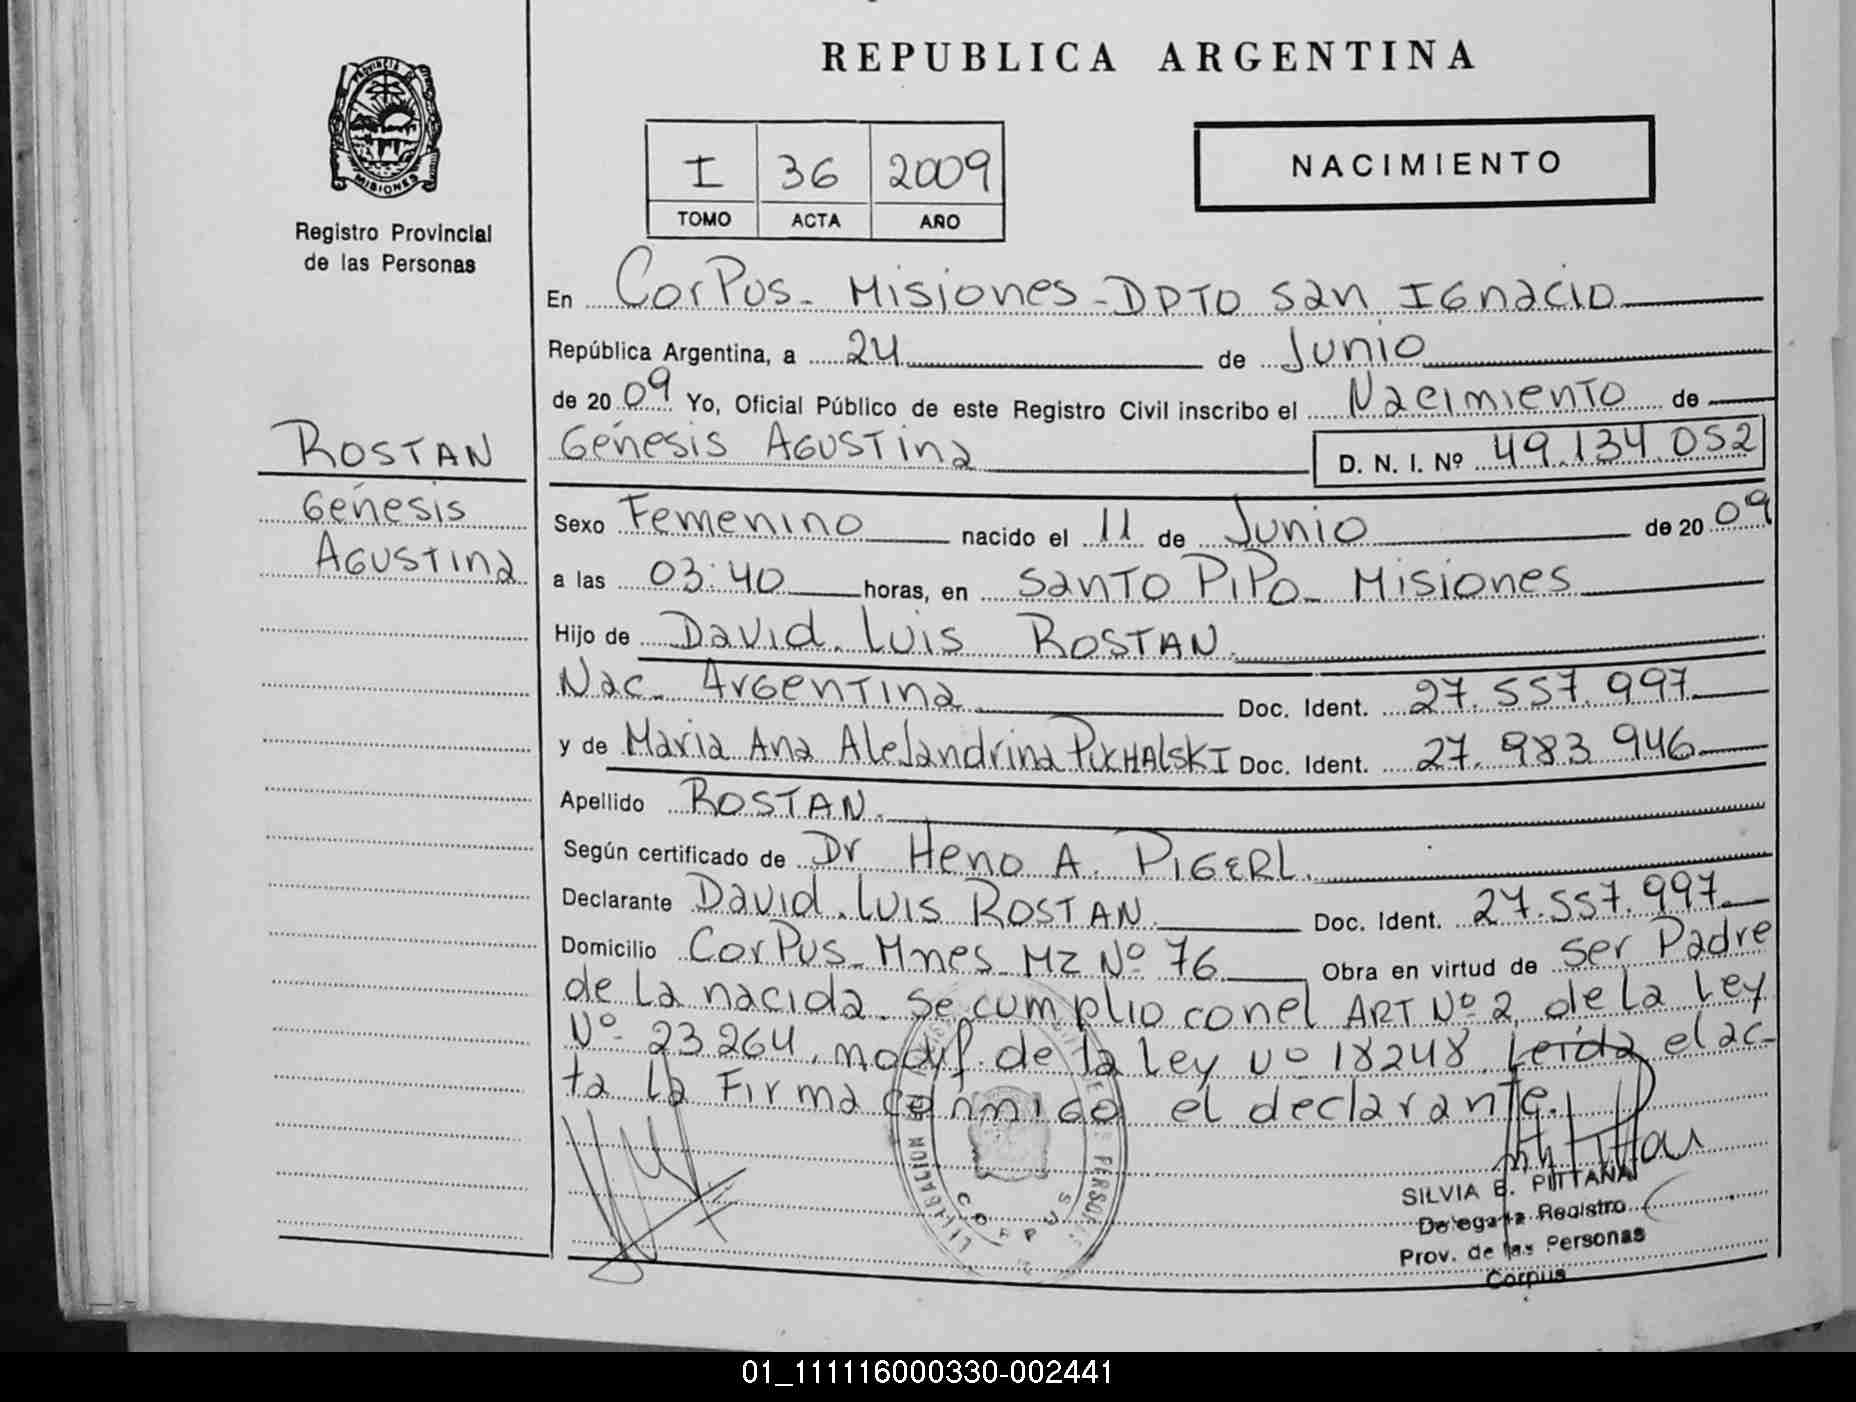 REPUBLICA ARGENTINA
PROVINCIA DE
MISIONES
Registro Provincial
de las Personas
I 36 2009
TOMO ACTA AÑO
NACIMIENTO
En Corpus - Misiones - DPTO San Ignacio
República Argentina, a 24 de Junio
de 2009 Yo, Oficial Público de este Registro Civil inscribo el Nacimiento de
Génesis Agustina D. N. I. Nº 49.134.052
ROSTAN
Génesis
Agustina
Sexo Femenino nacido el 11 de Junio de 2009
a las 03:40 horas, en Santo Pipo - Misiones
Hijo de David Luis ROSTAN
Nac. Argentina Doc. Ident. 27.557.997
y de Maria Ana Alejandrina Doc. Ident. 27.983.946
Apellido ROSTAN
Según certificado de Dr Heno A. PIGERL
Declarante David Luis ROSTAN Doc. Ident. 27.557.997
Domicilio Corpus - Mnes - Mz Nº 76 Obra en virtud de ser Padre
de la nacida. Se cumplio con el ART Nº 2 de la Ley
Nº 23264, modif. de la Ley Nº 18248. Leída el ac-
ta la Firma conmigo el declarante.
CORPUS
SILVIA B. PITTANA
Delegada Registro
Prov. de las Personas
Corpus
01_111116000330-002441